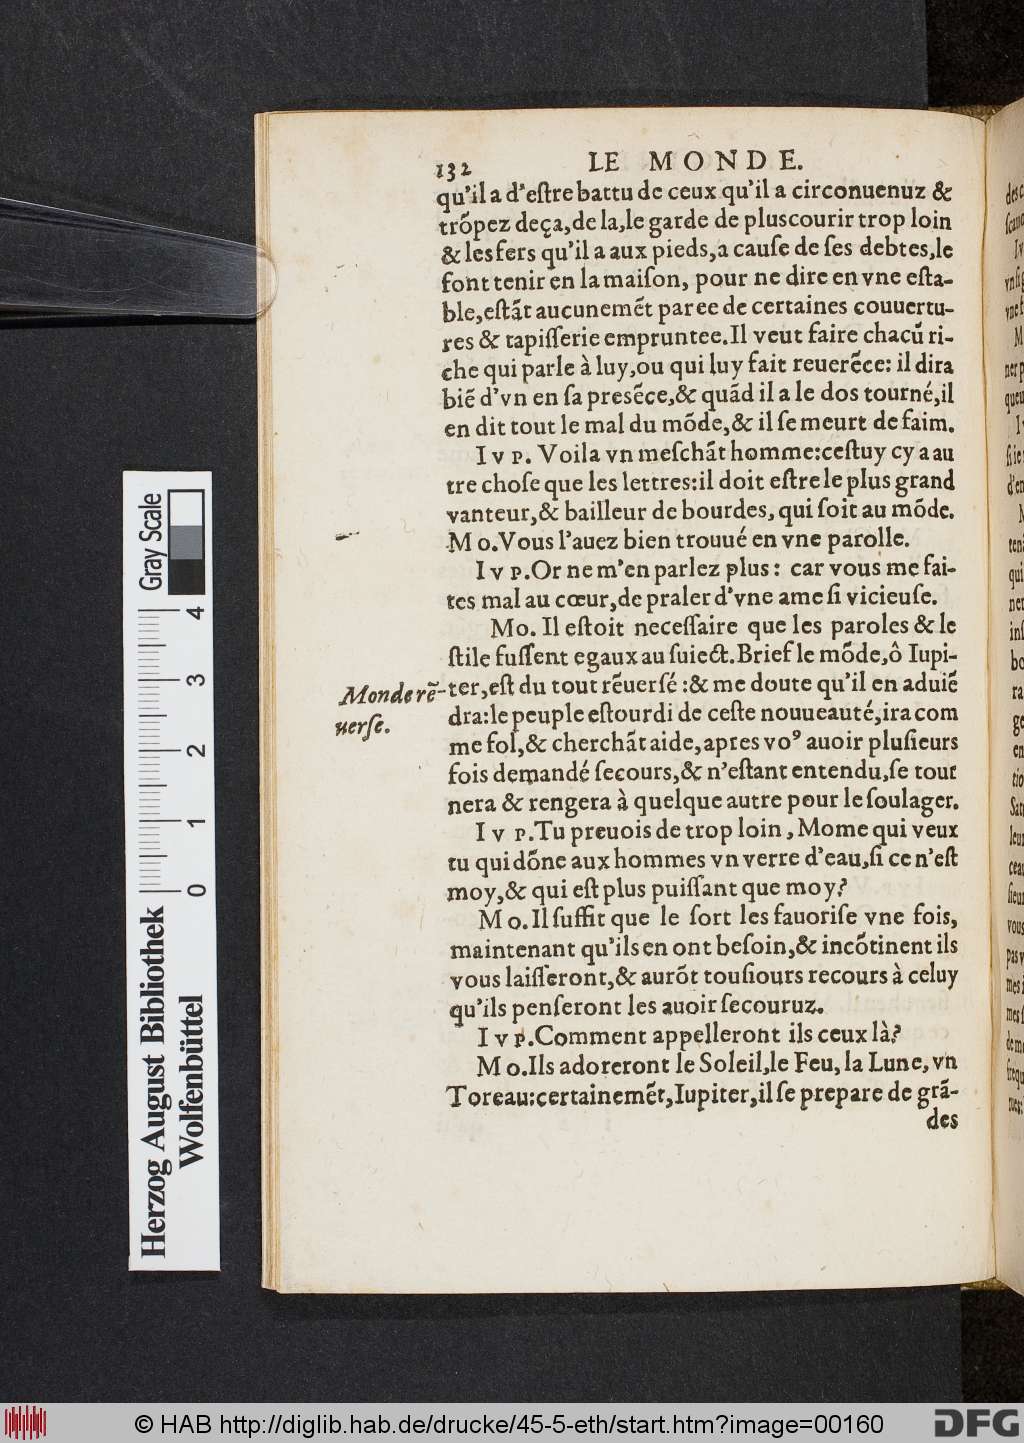 132 LE MONDE.
qu'il a d'eſtre battu de ceux qu'il a circonuenuz &
trõpez deça, de la, le garde de plus courir trop loin
& les fers qu'il a aux pieds, a cauſe de ſes debtes, le
font tenir en la maiſon, pour ne dire en vne eſta-
ble, eſtãt aucunemẽt paree de certaines couuertu-
res & tapiſſerie empruntee. Il veut faire chacũ ri-
che qui parle à luy, ou qui luy fait reuerẽce: il dira
biẽ d'vn en ſa preſẽce, & quãd il a le dos tourné, il
en dit tout le mal du mõde, & il ſe meurt de faim.
IVP. Voila vn meſchãt homme: ceſtuy cy a au
tre choſe que les lettres: il doit eſtre le plus grand
vanteur, & bailleur de bourdes, qui ſoit au mõde.
MO. Vous l'auez bien trouué en vne parolle.
IVP. Or ne m'en parlez plus: car vous me fai-
tes mal au cœur, de praler d'vne ame ſi vicieuſe.
MO. Il eſtoit neceſſaire que les paroles & le
ſtile fuſſent egaux au ſuiect. Brief le mõde, ô Iupi-
Monde rẽ-
uerſe.
ter, eſt du tout rẽuerſé: & me doute qu'il en aduiẽ
dra: le peuple eſtourdi de ceſte nouueauté, ira com
me fol, & cherchãt aide, apres voꝰ auoir pluſieurs
fois demandé ſecours, & n'eſtant entendu, ſe tour
nera & rengera à quelque autre pour le ſoulager.
IVP. Tu preuois de trop loin, Mome qui veux
tu qui dõne aux hommes vn verre d'eau, ſi ce n'eſt
moy, & qui eſt plus puiſſant que moy?
MO. Il ſuffit que le ſort les fauoriſe vne fois,
maintenant qu'ils en ont beſoin, & incõtinent ils
vous laiſſeront, & aurõt touſiours recours à celuy
qu'ils penſeront les auoir ſecouruz.
IVP. Comment appelleront ils ceux là?
MO. Ils adoreront le Soleil, le Feu, la Lune, vn
Toreau: certainemẽt, Iupiter, il ſe prepare de grã-
des
Gray Scale
4 3 2 1 0
Herzog August Bibliothek
Wolfenbüttel
© HAB http://diglib.hab.de/drucke/45-5-eth/start.htm?image=00160
DFG